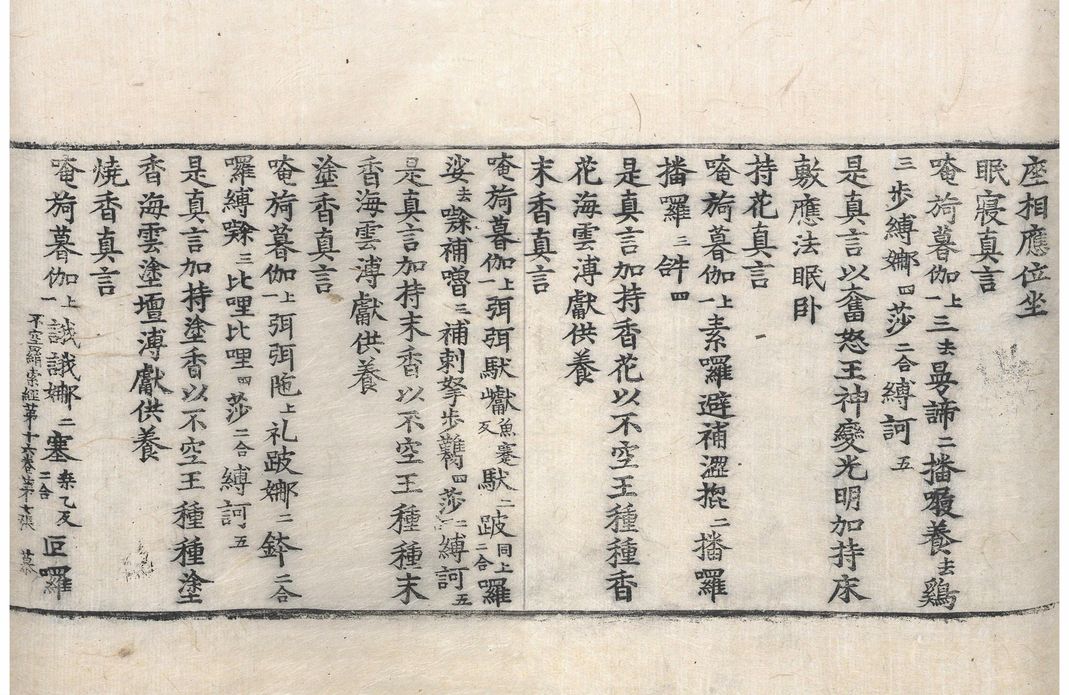 座相應位坐
眠寢真言
唵旖暮伽上一三去曼諦二播囉養去鷄
三步縛娜四莎二合縛訶五
是真言以奮怒王神變光明加持床
敷應法眠卧
持花真言
唵旖暮伽上一素囉避補澀㨫二播囉
播囉三𤙖四
是真言加持香花以不空王種種香
花海雲溥獻供養
末香真言
唵旖暮伽上一弭弭馱巘魚蹇反馱二跛同上二合囉
娑去㘑補嚕三補刺拏步鷸四莎二合縛訶五
是真言加持末香以不空王種種末
香海雲溥獻供養
塗香真言
唵旖暮伽上一弭弭陁上礼跛娜二鉢二合
囉縛㘑三比哩比哩四莎二合縛訶五
是真言加持塗香以不空王種種塗
香海雲塗壇溥獻供養
燒香真言
唵旖暮伽上一誐誐娜二塞桒乙反二合叵囉
不空罥索經第十六卷第七張 慕